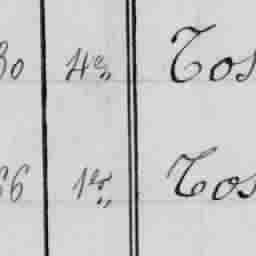 30 4e„ Tos
66 1er„ Tos